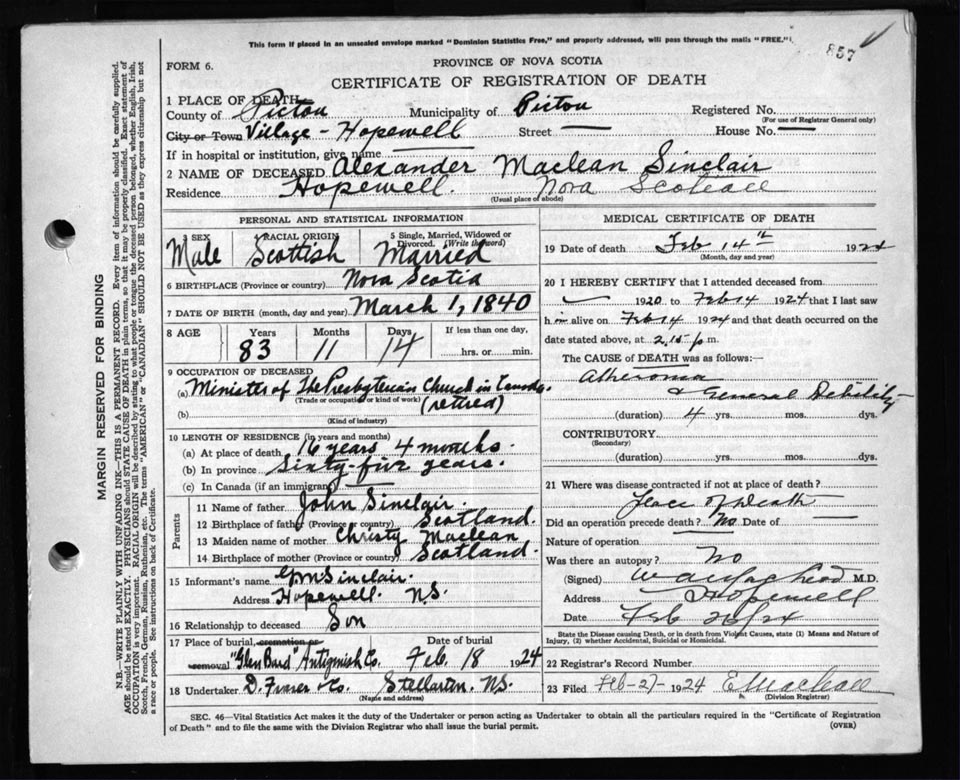 This form if placed in an unsealed envelope marked "Dominion Statistics Free," and properly addressed, will pass through the mails "FREE."
857
FORM 6.
PROVINCE OF NOVA SCOTIA
CERTIFICATE OF REGISTRATION OF DEATH
1 PLACE OF DEATH
County of Pictou Municipality of Pictou Registered No.
(For use of Registrar General only)
City or Town Village - Hopewell Street — House No. —
If in hospital or institution, give name —
2 NAME OF DECEASED Alexander Maclean Sinclair
Residence Hopewell. Nova Scotia
(Usual place of abode)
PERSONAL AND STATISTICAL INFORMATION
3 SEX 4 RACIAL ORIGIN 5 Single, Married, Widowed or Divorced. (Write the word)
Male Scottish Married
6 BIRTHPLACE (Province or country) Nova Scotia
7 DATE OF BIRTH (month, day and year) March 1, 1840
8 AGE Years Months Days If less than one day,
83 11 14 hrs. or min.
9 OCCUPATION OF DECEASED
(a) Minister of The Presbyterian Church in Canada
(Trade or occupation or kind of work) (retired)
(b)
(Kind of industry)
10 LENGTH OF RESIDENCE (in years and months)
(a) At place of death 16 years 4 months.
(b) In province Sixty-five years.
(c) In Canada (if an immigrant)
Parents
11 Name of father John Sinclair.
12 Birthplace of father (Province or country) Scotland.
13 Maiden name of mother Christy Maclean
14 Birthplace of mother (Province or country) Scotland.
15 Informant's name Sinclair.
Address Hopewell. N.S.
16 Relationship to deceased Son
17 Place of burial, cremation or Date of burial
removal "Glen Bard" Antigonish Co. Feb. 18 1924
18 Undertaker D. Fraser & Co. Stellarton. N.S.
(Name and address)
MEDICAL CERTIFICATE OF DEATH
19 Date of death Feb 14th 1924
(Month, day and year)
20 I HEREBY CERTIFY that I attended deceased from
— 1920 to Feb 14 1924 that I last saw
him alive on Feb 14 1924 and that death occurred on the
date stated above, at 2.15 p m.
The CAUSE of DEATH was as follows:
Atheroma
& General Debility
(duration) 4 yrs. mos. dys.
CONTRIBUTORY.
(Secondary)
(duration) yrs. mos. dys.
21 Where was disease contracted if not at place of death?
Place of Death
Did an operation precede death? No Date of —
Nature of operation
Was there an autopsy? No
(Signed) M.D.
Address Hopewell
Date Feb 26/24
State the Disease causing Death, or in death from Violent Causes, state (1) Means and Nature of
Injury, (2) whether Accidental, Suicidal or Homicidal.
22 Registrar's Record Number
23 Filed Feb-27- 1924
(Division Registrar)
SEC. 46—Vital Statistics Act makes it the duty of the Undertaker or person acting as Undertaker to obtain all the particulars required in the "Certificate of Registration
of Death" and to file the same with the Division Registrar who shall issue the burial permit. (OVER)
MARGIN RESERVED FOR BINDING
N.B.—WRITE PLAINLY WITH UNFADING INK—THIS IS A PERMANENT RECORD. Every item of information should be carefully supplied.
AGE should be stated EXACTLY. PHYSICIANS should STATE CAUSE OF DEATH in plain terms, so that it may be properly classified. Exact statement of
OCCUPATION is very important. RACIAL ORIGIN will be described by stating to what people or tongue the deceased person belonged, whether English, Irish,
Scotch, French, German, Russian, Ruthenian, etc. The terms "AMERICAN" or "CANADIAN" SHOULD NOT BE USED as they express citizenship but not
a race or people. See instructions on back of Certificate.